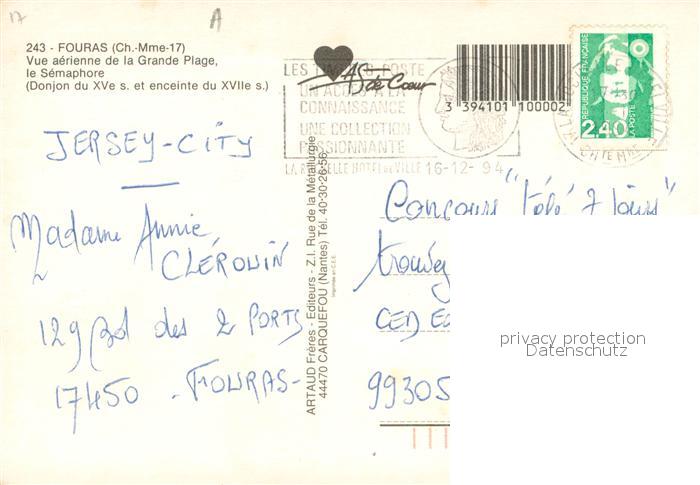 17
A
243 - FOURAS (Ch.-Mme-17)
Vue aérienne de la Grande Plage,
le Sémaphore
(Donjon du XVe s. et enceinte du XVIIe s.)
JERSEY-CITY
Madame Annie
CLÉROUIN
129 Bd des 2 PORTS
17450 - FOURAS-
ARTAUD Frères - Editeurs - Z.I. Rue de la Métallurgie
44470 CARQUEFOU (Nantes) Tél. 40-30-26-56
Imprimé en C.E.E.
As de Cœur
3 394101 100002
POSTE
UN ACCÈS A LA
CONNAISSANCE
UNE COLLECTION
PASSIONNANTE
LA ROCHELLE HOTEL DE VILLE 16-12- 94
REPUBLIQUE FRANÇAISE
2,40
LA POSTE
Concours "télé 7 jours"
CED
99305
privacy protection
Datenschutz